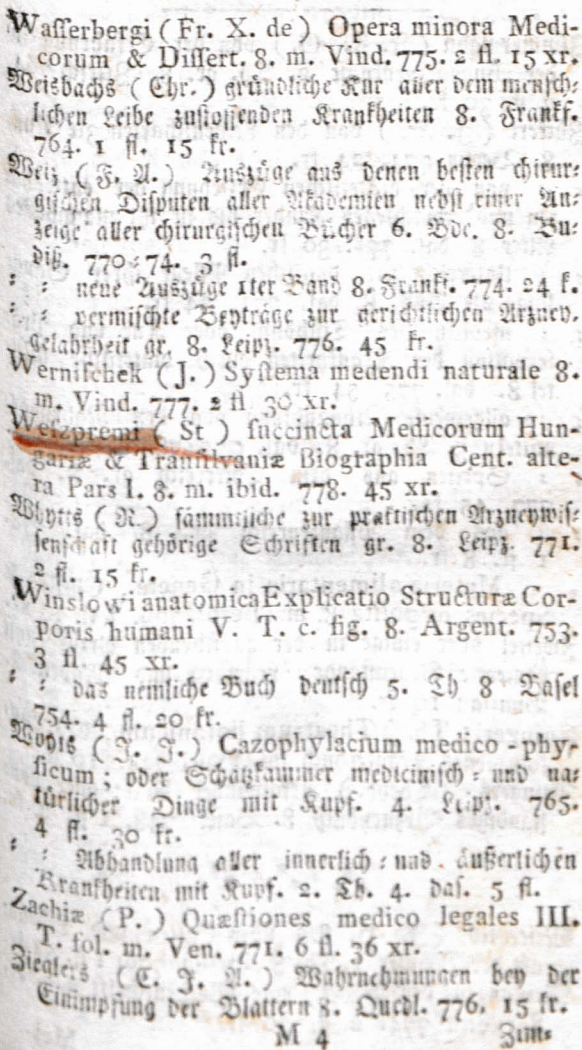 Waſſerbergi (Fr. X. de) Opera minora Medi-
corum & Diſſert. 8. m. Vind. 775. 2 fl. 15 xr.
Weisbachs (Chr.) gründliche Kur aller dem menſch-
lichen Leibe zuſtoſſenden Krankheiten 8. Frankf.
764. 1 fl. 15 kr.
Weiz (F. A.) Auszüge aus denen beſten chirur-
giſchen Diſputen aller Akademien nebſt einer An-
zeige aller chirurgiſchen Bücher 6. Bde. 8. Bu-
diß. 770-74. 3 fl.
- - neue Auszüge 1ter Band 8. Frankf. 774. 24 k.
- - vermiſchte Beyträge zur gerichtlichen Arzney-
gelahrheit gr. 8. Leipz. 776. 45 kr.
Werniſchek (J.) Syſtema medendi naturale 8.
m. Vind. 777. 2 fl 30 xr.
Weſzpremi (St ) ſuccincta Medicorum Hun-
gariæ & Tranſilvaniæ Biographia Cent. alte-
ra Pars I. 8. m. ibid. 778. 45 xr.
Whytts (R.) ſämmtliche zur praktiſchen Arzneywiſ-
ſenſchaft gehörige Schriften gr. 8. Leipz. 771.
2 fl. 15 kr.
Winslowi anatomica Explicatio Structuræ Cor-
poris humani V. T. c. fig. 8. Argent. 753.
3 fl. 45 xr.
- - das nemliche Buch deutſch 5. Th 8 Baſel
754. 4 fl. 20 kr.
Woyts (J. J.) Cazophylacium medico-phy-
ſicum; oder Schatzkammer mediciniſch- und na-
türlicher Dinge mit Kupf. 4. Leipz. 765.
4 fl. 30 kr.
- - Abhandlung aller innerlich- und äußerlichen
Krankheiten mit Kupf. 2. Th. 4. daſ. 5 fl.
Zachiæ (P.) Quæſtiones medico legales III.
T. fol. m. Ven. 771. 6 fl. 36 xr.
Zieglers (C. J. A.) Wahrnehmungen bey der
Einimpfung der Blattern 8. Quedl. 776. 15 kr.
M 4 Zim-